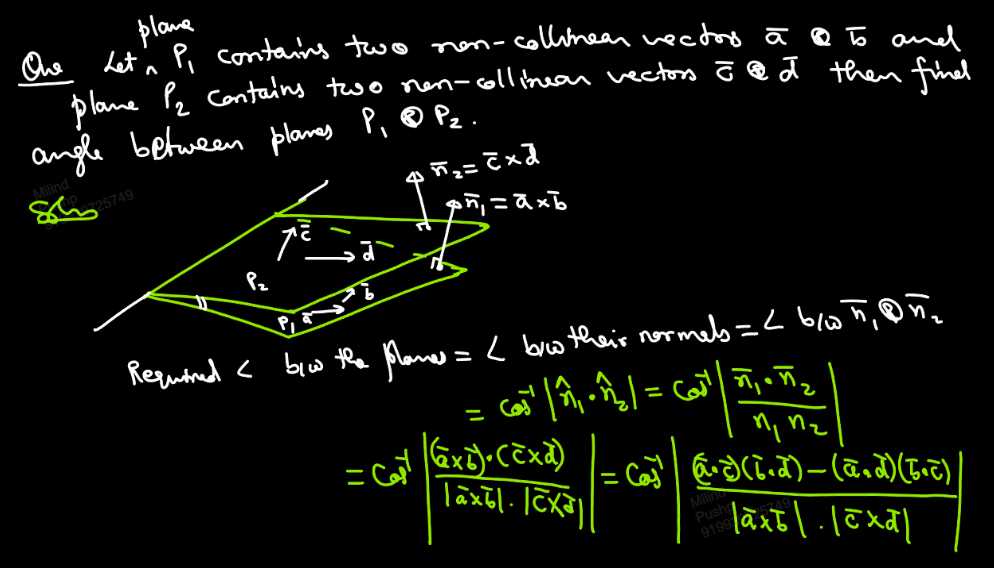 Que Let plane P₁ contains two non-collinear vectors a̅ & b̅ and
plane P₂ contains two non-collinear vectors c̅ & d̅ then find
angle between planes P₁ & P₂.
Soln
n̅₂ = c̅ × d̅
n̅₁ = a̅ × b̅
c̅
d̅
P₂
b̅
P₁ a̅
Required < b/w the planes = < b/w their normals = < b/w n̅₁ & n̅₂
= Cos⁻¹ |n̂₁ · n̂₂| = Cos⁻¹ | n̅₁ · n̅₂ / n₁ n₂ |
= Cos⁻¹ | (a̅×b̅)·(c̅×d̅) / |a̅×b̅| · |c̅×d̅| | = Cos⁻¹ | (a̅·c̅)(b̅·d̅) − (a̅·d̅)(b̅·c̅) / |a̅×b̅| · |c̅×d̅| |